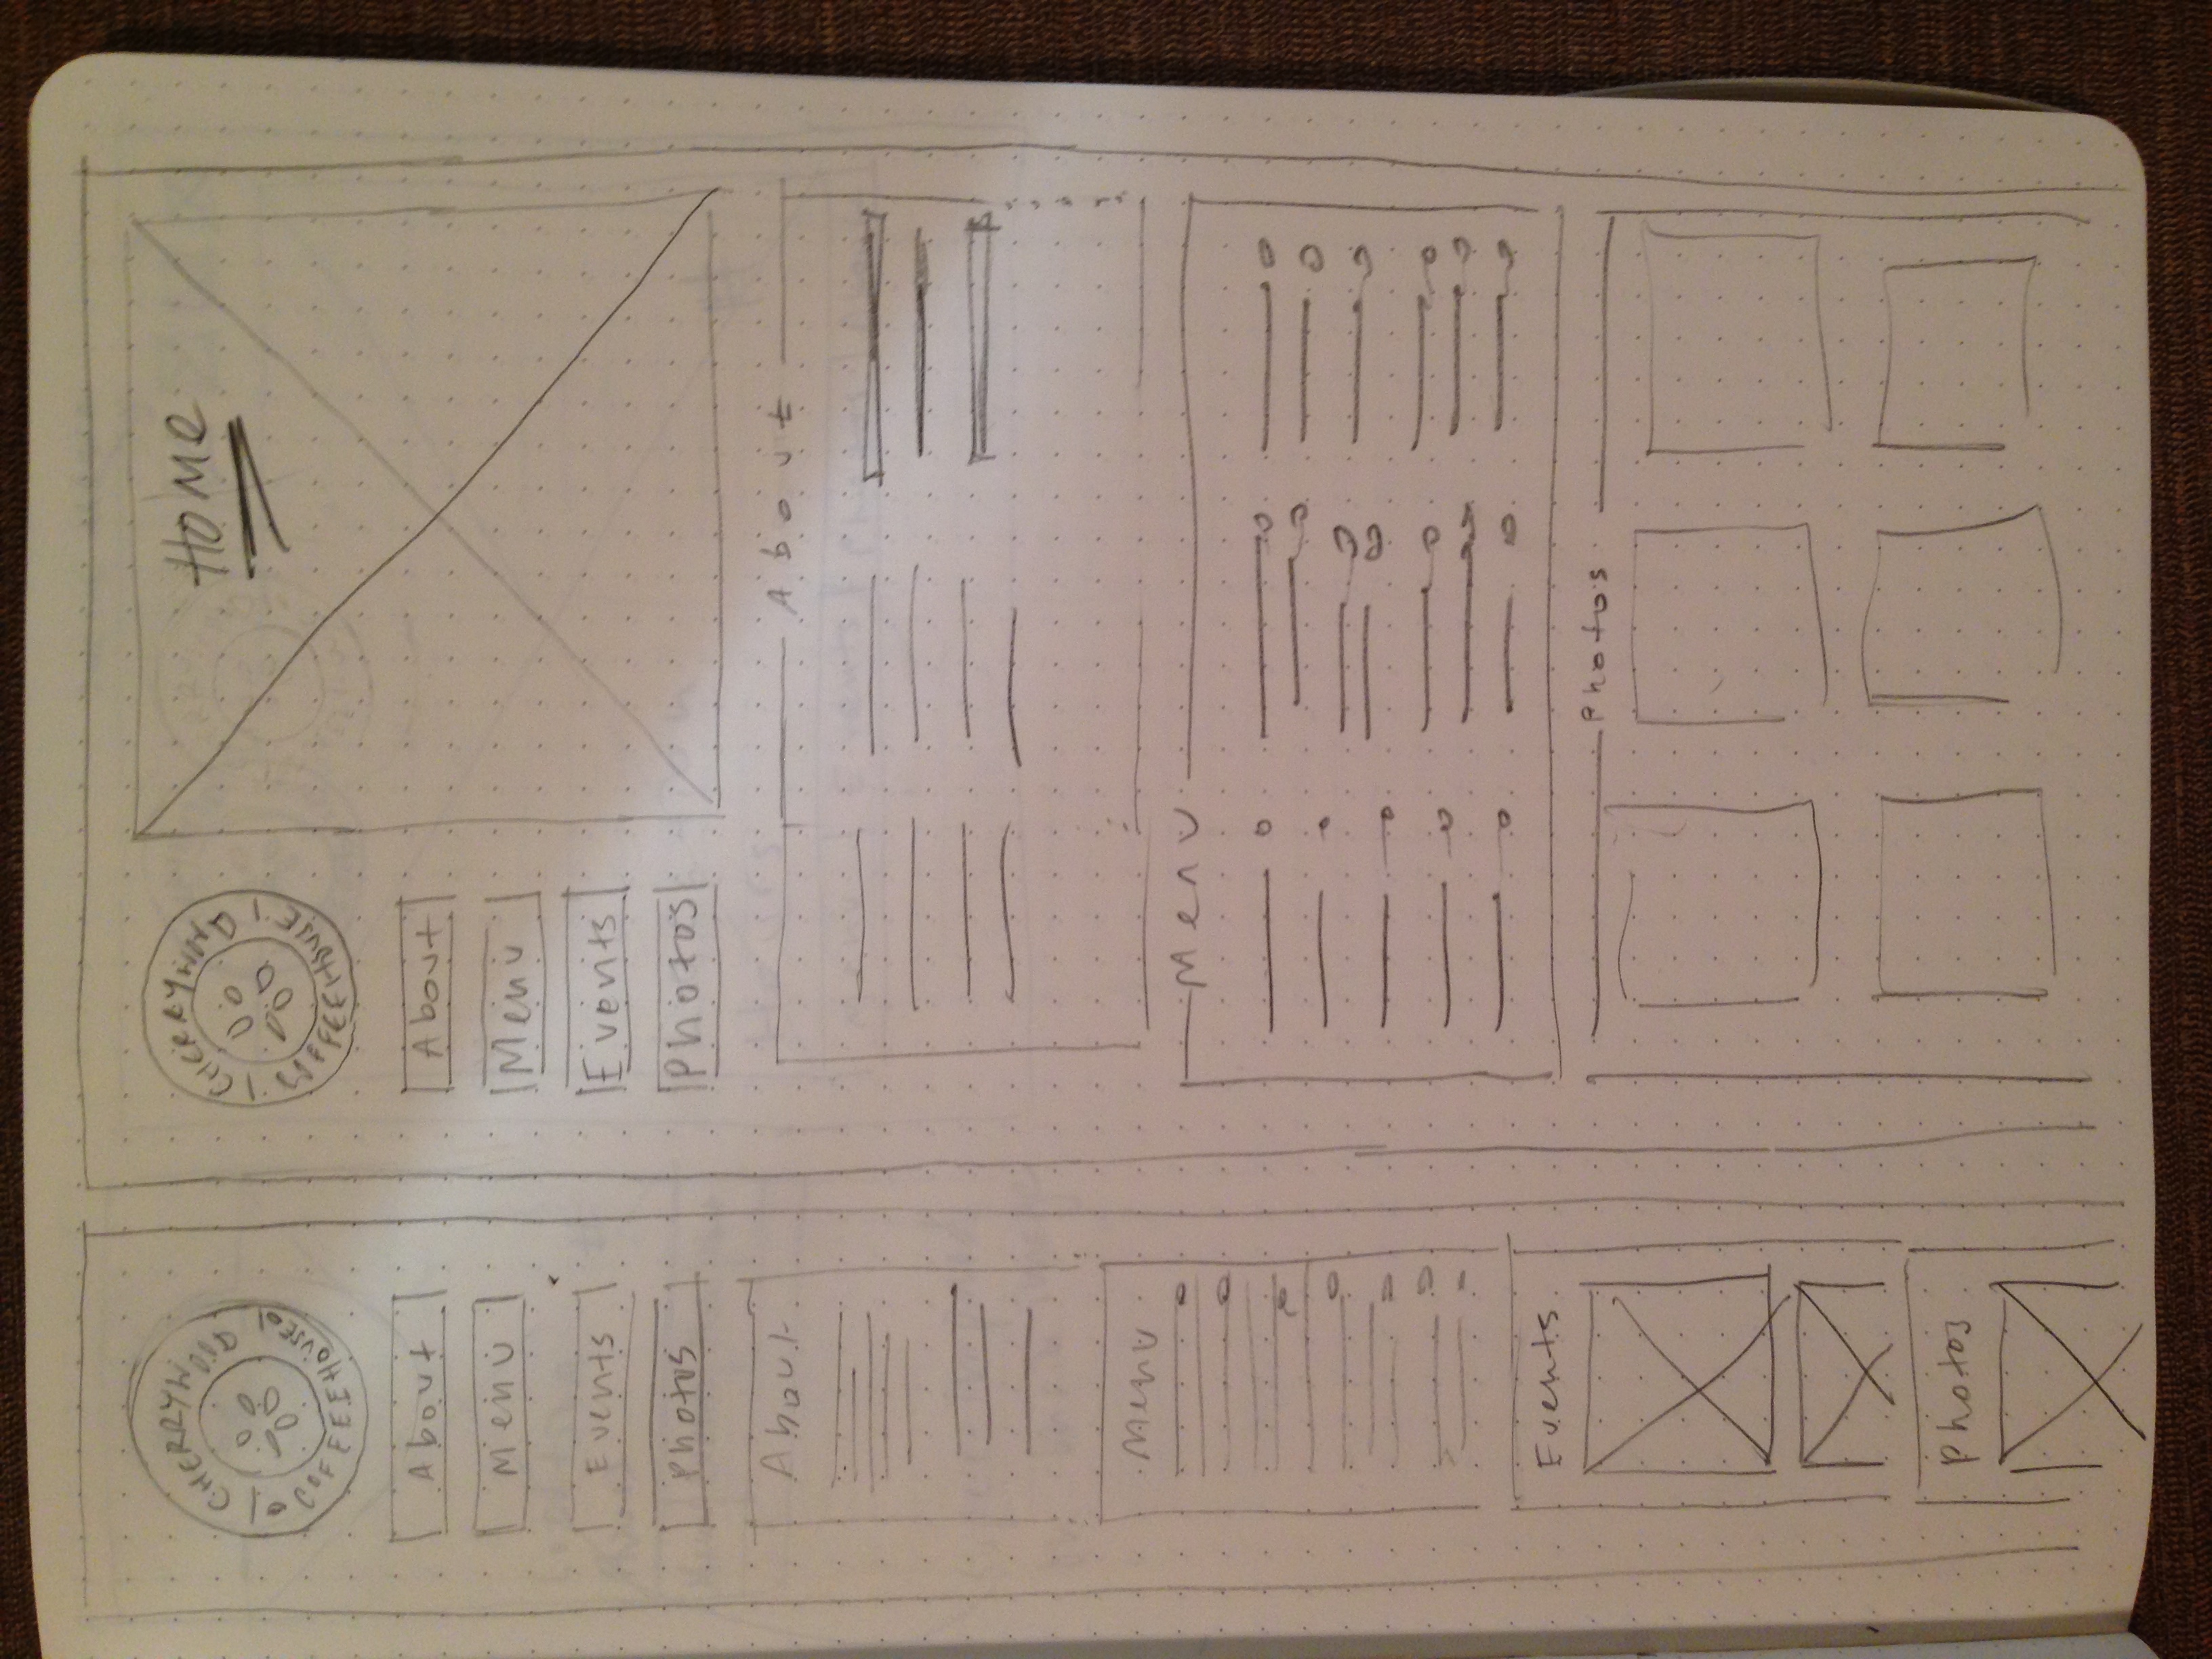 CHERRYWOOD
COFFEEHOUSE
About
Menu
Events
Photos
About
Menu
Events
Photos
CHERRYWOOD
COFFEEHOUSE
HOME
About
Menu
Events
Photos
About
Menu
Photos